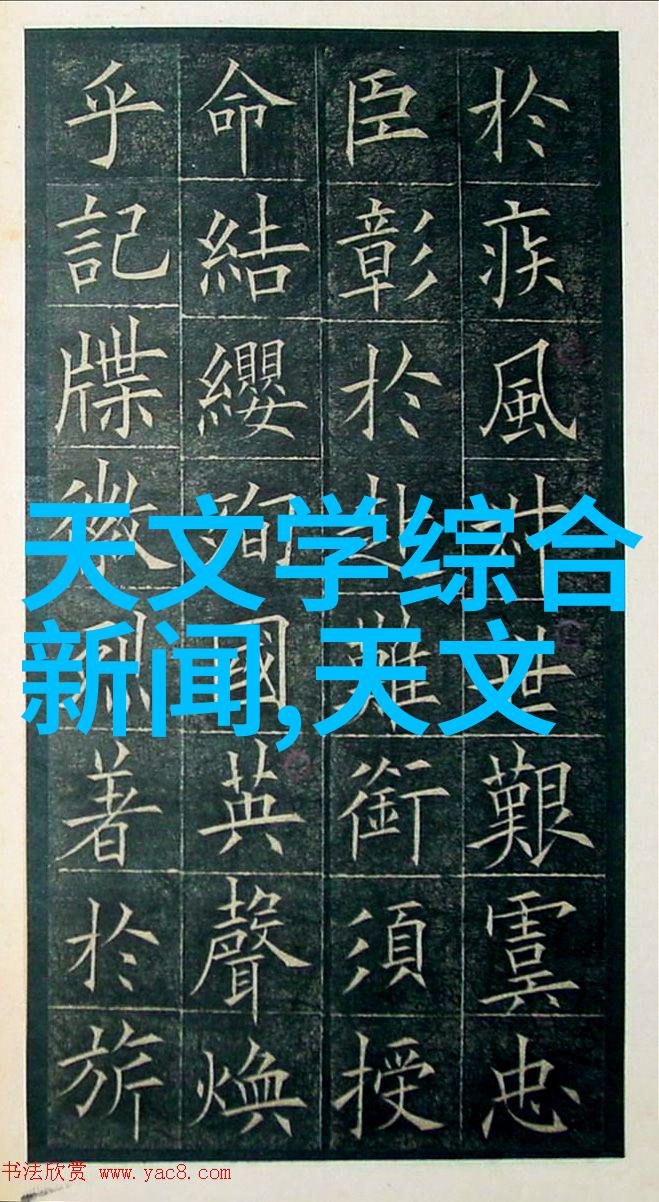 於疾風世艱虞忠
臣彰於赴難銜須授
命結纓殉國英聲煥
乎記牒徽烈著於旂
天文学综合
新闻,天文
书法欣赏 www.yac8.com